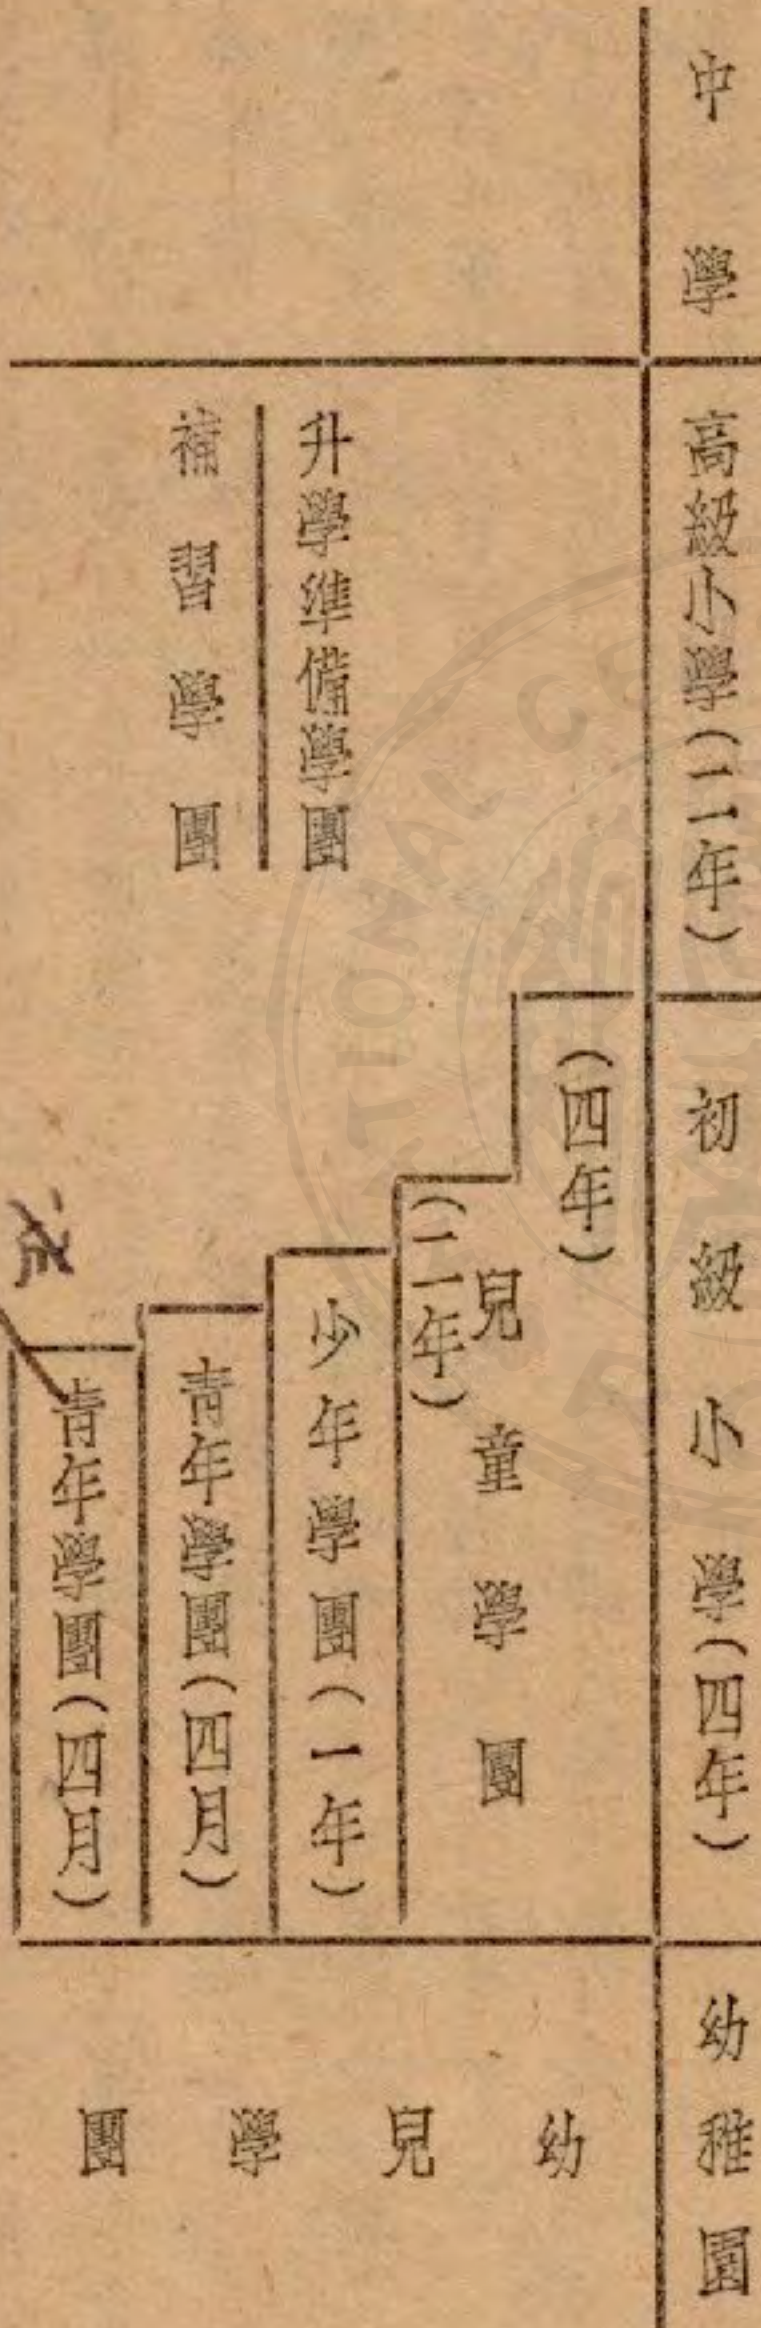 中學
高級小學(二年)
初級小學(四年)
幼稚園
升學準備學團
補習學團
(四年)
兒童學團
(二年)
少年學團(一年)
青年學團(四月)
青年學團(四月)
幼兒學團